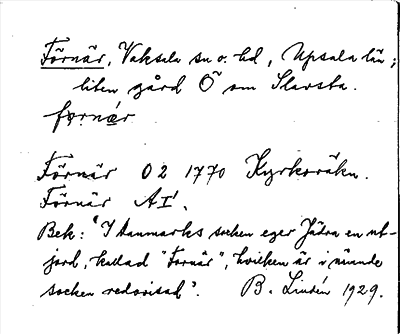 Förnär, Vaksala sn o. hd, Upsala län;
liten gård Ö om Slavsta.
fo̤rnǽr
Förnär O 2 1770 Kyrkoräkn.
Förnär AI¹.
Bek: "I Danmarks socken eger Jädra en ut-
jord, kallad "Förnär", hvilken är i nämnde
socken redovisad". B. Lindén 1929.